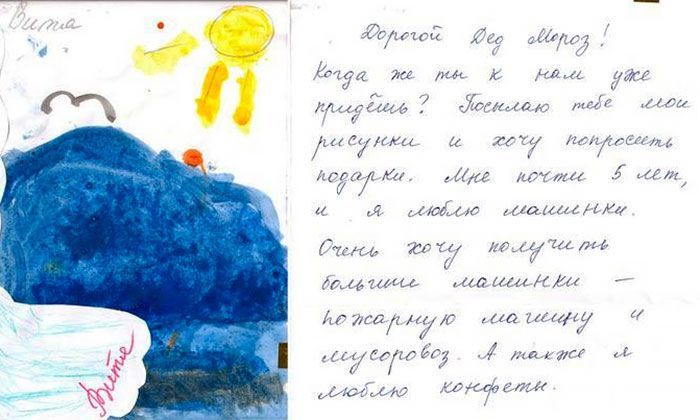 Витя
Витя
Дорогой Дед Мороз!
Когда же ты к нам уже
придёшь? Посылаю тебе мои
рисунки и хочу попросить
подарки. Мне почти 5 лет,
и я люблю машинки.
Очень хочу получить
большие машинки –
пожарную машину и
мусоровоз. А также я
люблю конфеты.